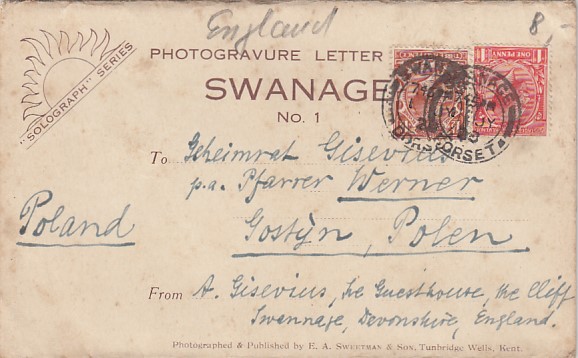 England
8,-
"SOLOGRAPH" SERIES
PHOTOGRAVURE LETTER
SWANAGE
No. 1
ONE PENNY
SWANAGE
DORSET
To Geheimrat Gisevius
p.a. Pfarrer Werner
Poland
Gostyn, Polen
From A. Gisevius, the Guesthouse, the Cliff
Swannage, Devonshire, England.
Photographed & Published by E. A. SWEETMAN & SON, Tunbridge Wells, Kent.